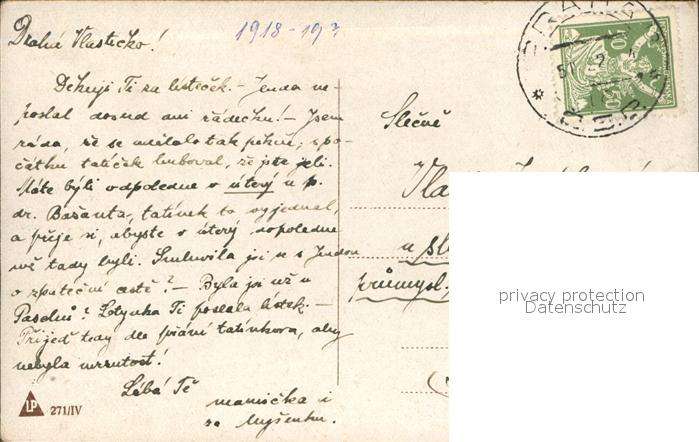 Drahá Vlastičko!
1918-19?
Děkuji Ti za lísteček. - Jenda ne-
poslal dosud ani řádečku! - Jsem
ráda, že se udělalo tak pěkně, zpo-
čátku tatíček huboval, že jste jeli.
Máte býti odpoledne v úterý u p.
dr. Bažanta, tatínek to vyjednal,
a přeje si, abyste v úterý dopoledne
už tady byli. Smluvila jsi se s Jendou
o zpáteční cestě? - Byla jsi už u
? Lotynka Ti poslala lístek. -
Přijeď tedy dle přání tatínkova, aby
nebyla mrzutost!
Líbá Tě
mamička i
za
Slečně
Vla
u sl
průmysl.
PRAHA
privacy protection
Datenschutz
LP 271/IV